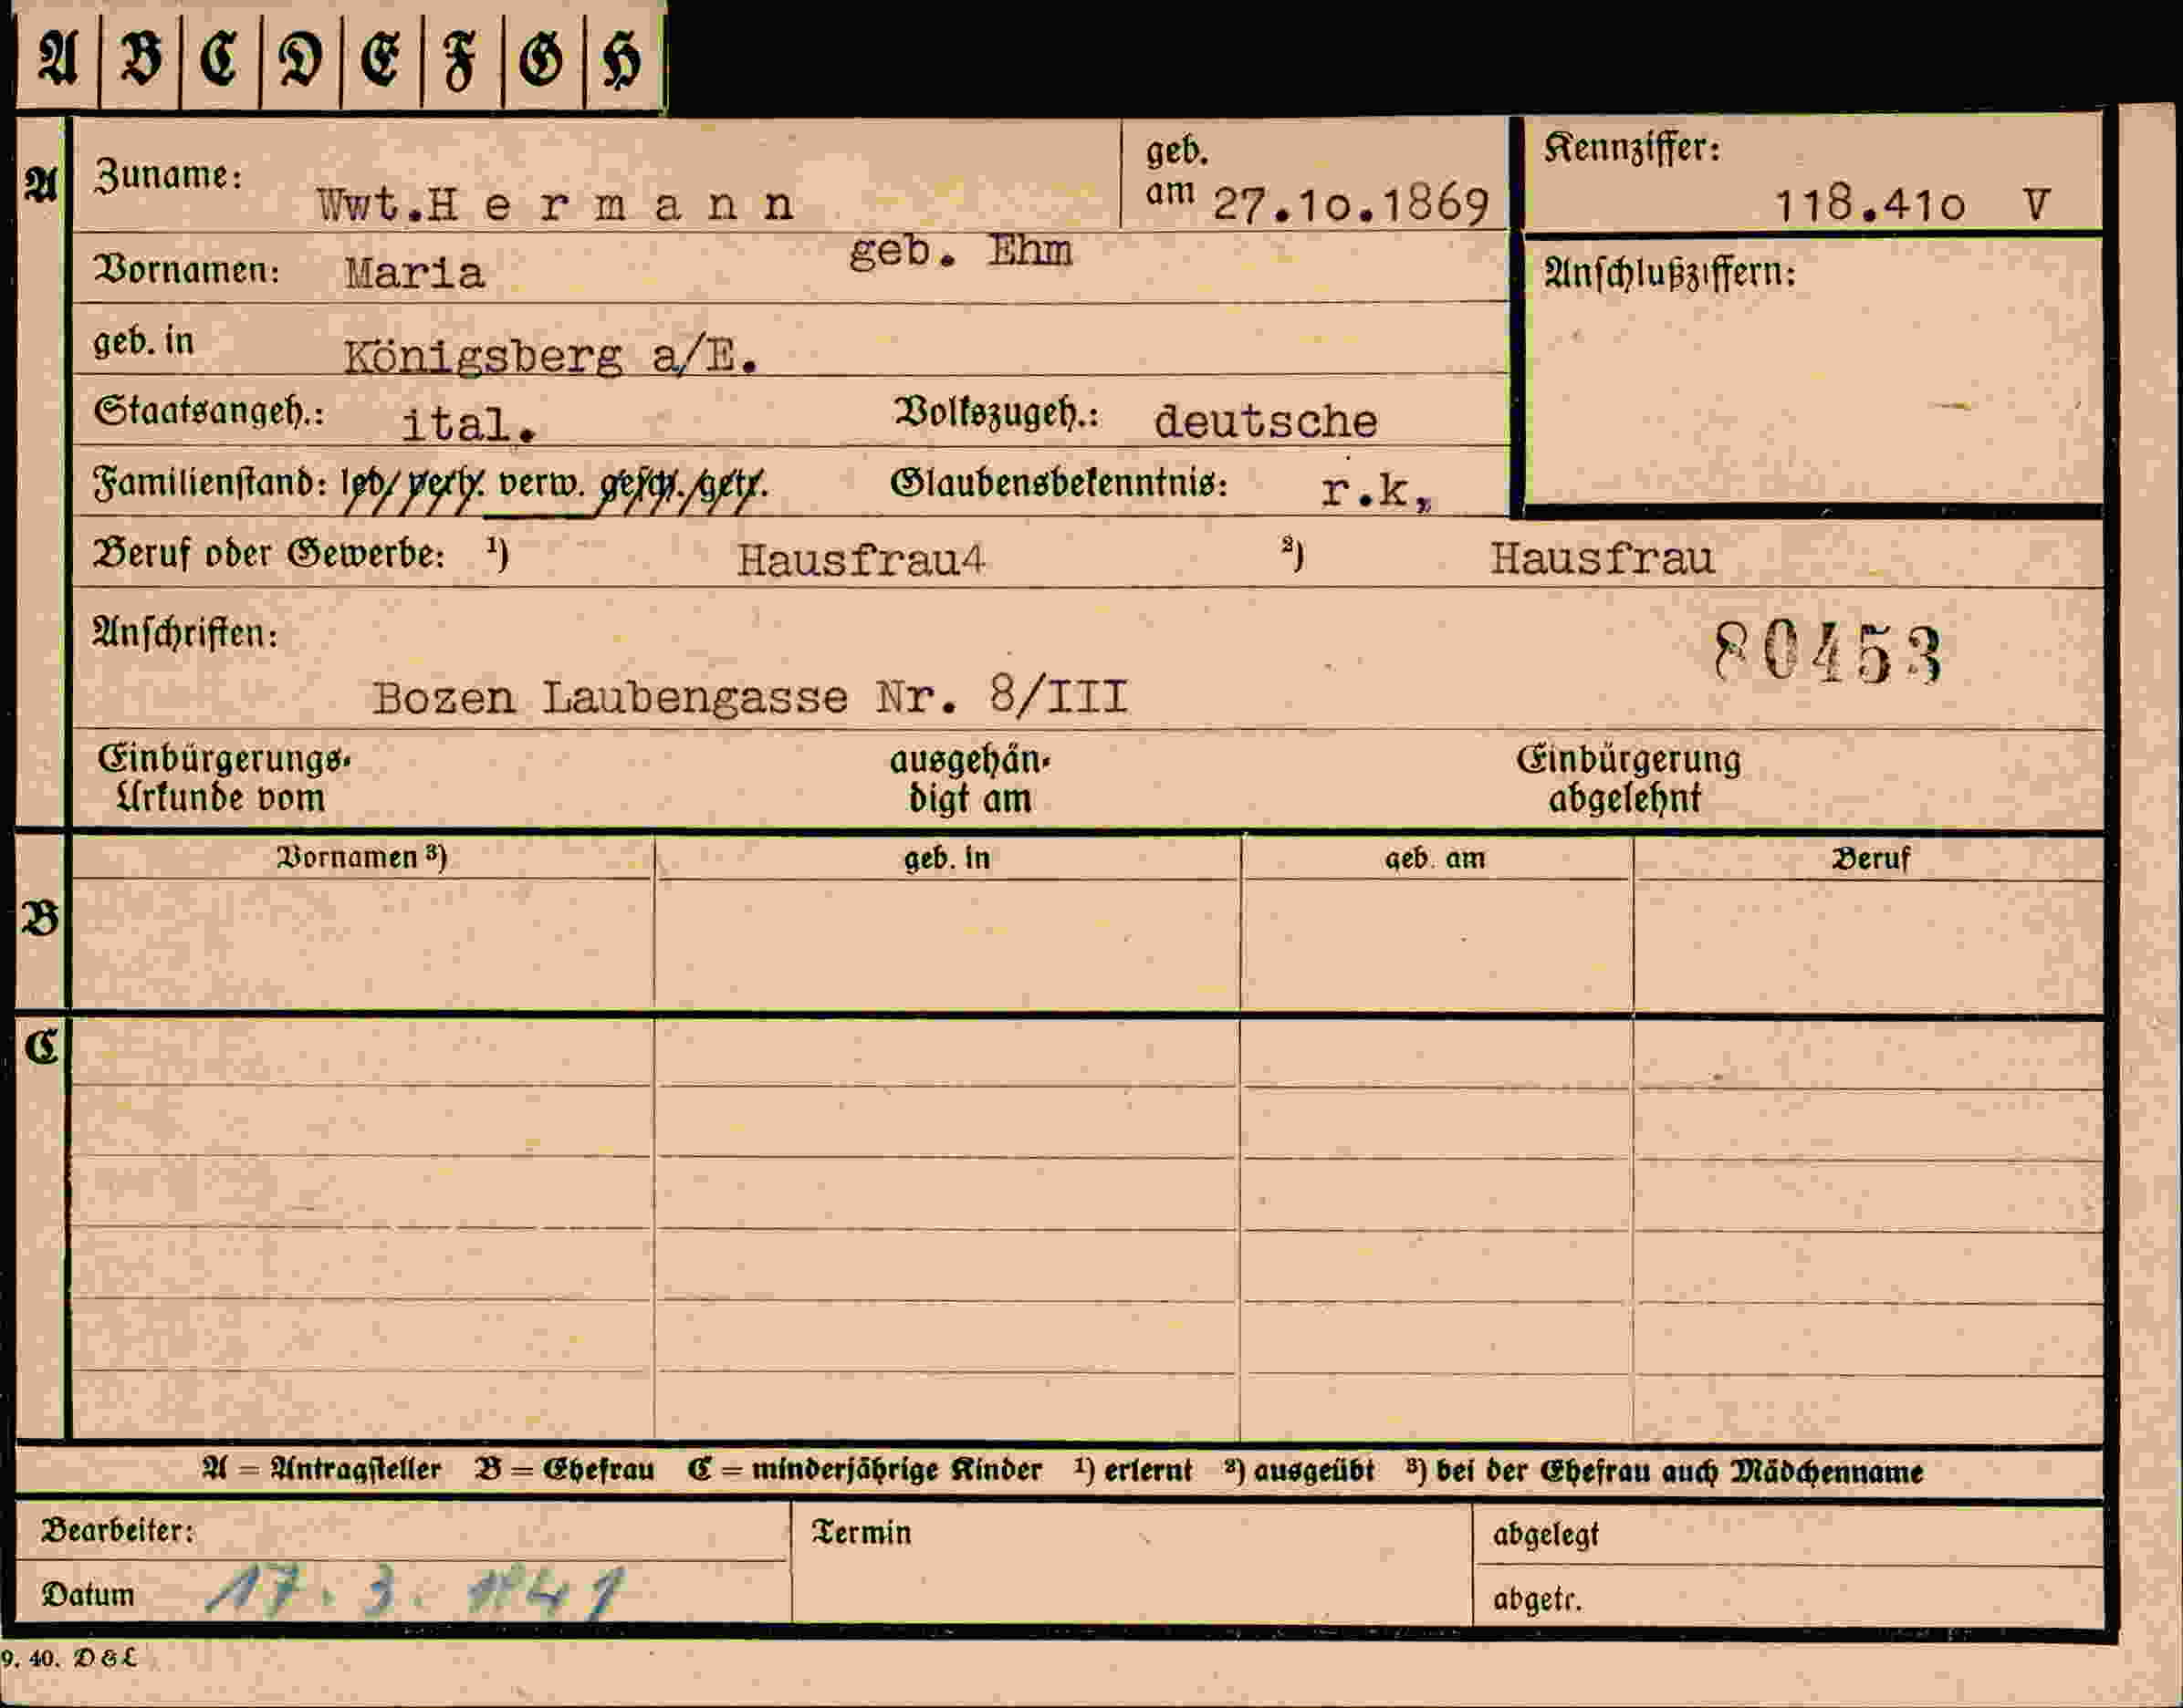 A B C D E F G H
A Zuname: Wwt.H e r m a n n geb. am 27.10.1869 Kennziffer: 118.410 V
geb. Ehm
Vornamen: Maria Anschlußziffern:
geb. in Königsberg a/E.
Staatsangeh.: ital. Volkszugeh.: deutsche
Familienstand: led. verh. verw. gesch. getr. Glaubensbekenntnis: r.k,
Beruf oder Gewerbe: ¹) Hausfrau4 ²) Hausfrau
Anschriften: 80453
Bozen Laubengasse Nr. 8/III
Einbürgerungs- ausgehän- Einbürgerung
Urkunde vom digt am abgelehnt
Vornamen ³) geb. in geb. am Beruf
B
C
A = Antragsteller B = Ehefrau C = minderjährige Kinder ¹) erlernt ²) ausgeübt ³) bei der Ehefrau auch Mädchenname
Bearbeiter: Termin abgelegt
Datum 17. 3. 1941 abgetr.
9. 40. D & L